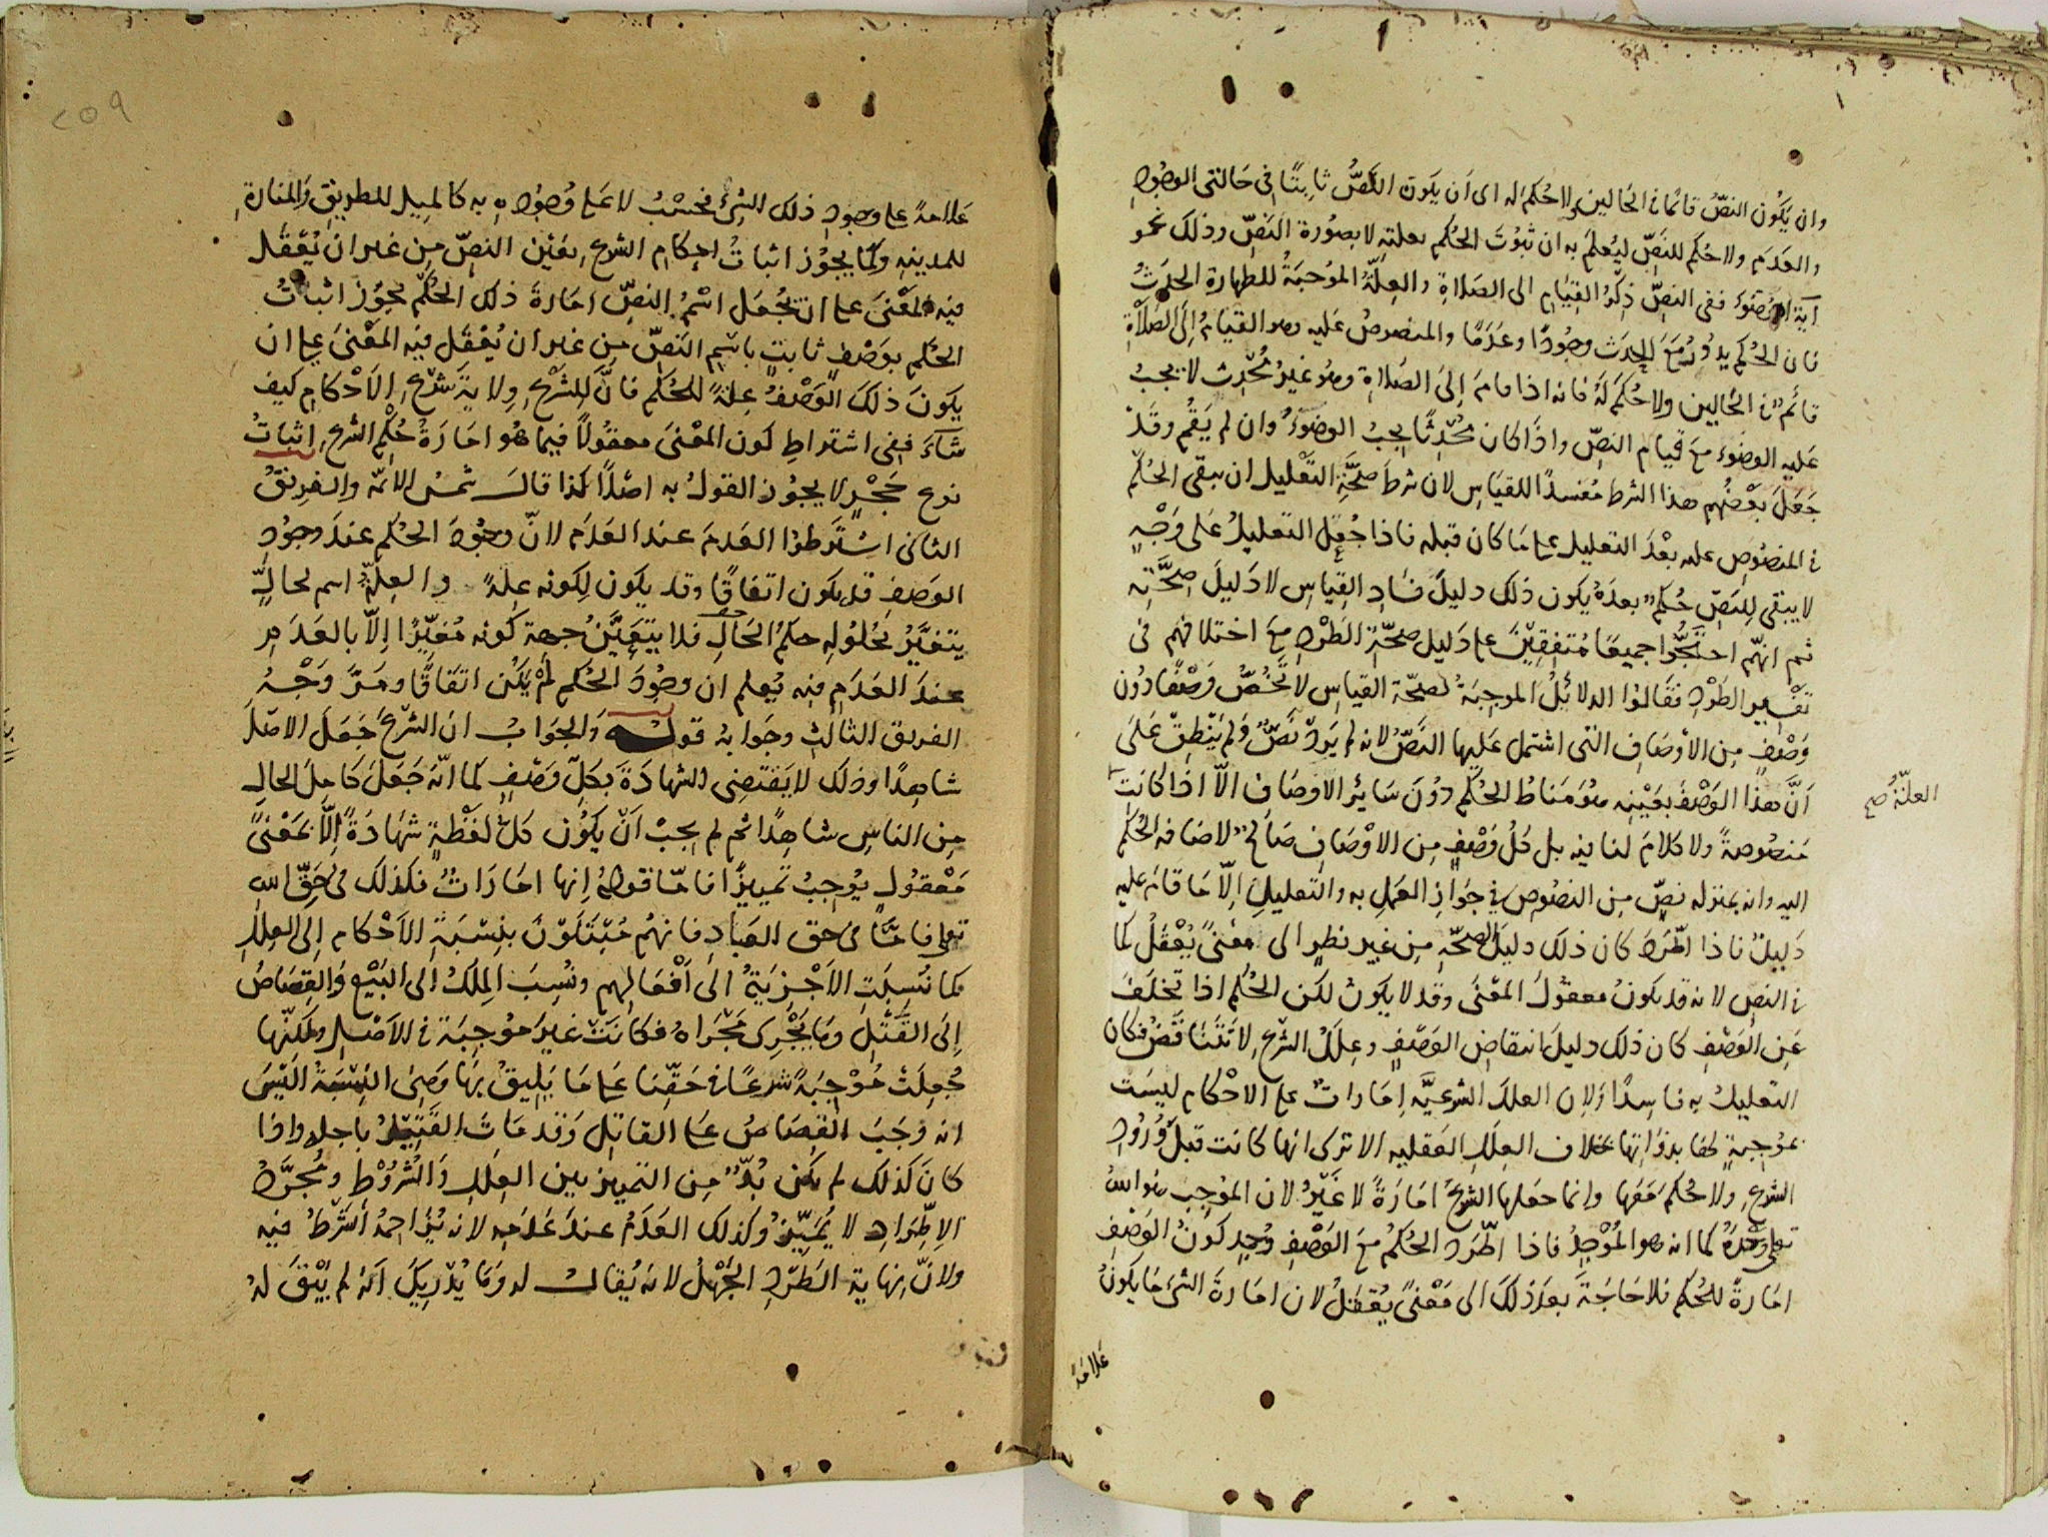 وان يَكُون النصّ قائمًا في الحَالين ولا حُكمَ له اى أن يَكون النَصُّ ثابِتًا في حَالتي الوجُود
والعَدَم ولا حُكم للنَصِّ ليُعلمَ به ان ثبُوتَ الحُكم بعلتِه لا بصُورة النَصِّ وذلك نحو
آية الوُضوءِ ففى النصِّ ذِكرُ القِيَام الى الصَلاةِ والعِلّةُ الموُجبَةُ للطهارة الحدَثُ
فان الحُكم يدُورُ مَعَ الحدَث وجُودًا وعَدَمًا والمنصوصُ عَليه وهو القيَامُ إلَى الصَلاةِ
قائمٌ في الحَالين ولا حُكمَ لَه فانه اذا قامَ إلَى الصَلاةِ وهو غيرُ مُحْدِث لا يجبُ
عَليه الوضوء معَ قيام النصِّ واذَا كان مُحْدِثًا يجبُ الوضوءُ وان لم يَقُم وقَد
جَعَلَ بَعْضُهم هذا الشرط مُفسدًا للقيَاسِ لان شرطَ صحَّةِ التَعْليل ان يبقى الحُكم
في المنصُوصِ عليه بعْدَ التعليل على ما كان قبله فاذا جُعِلَ التعليلُ عَلى وَجْهٍ
لا يبقى لِلنَصِّ حُكمٌ بعدَهُ يكون ذلك دليلَ فسَادِ القِيَاسِ لا دَليلَ صِحَّتِه
ثم انهم احتَجُّوا جميعًا مُتفِقِينَ على دَليل صحّةِ الطَرْدِ مَعَ اختلافهم في
تَفْسِير الطَرْدِ فقَالوا الدلائلُ الموجِبَةُ لصحّة القياسِ لا تَخُصُّ وَصْفًا دُون
وَصْفٍ مِن الأوصَافِ التى اشتمل عَليها النَصُّ لانه لم يَرِدْ نَصٌّ ولم يَنْطِقْ عَلَى
أنَّ هذَا الوَصْفَ بعَيْنِه هُوَ مَنَاطُ الحُكم دُوْنَ سَائر الاوصَاف الّا اذا كانت
العلّةُ صح
مَنصُوصةً ولا كلامَ لنا فيه بل كُلُّ وَصْفٍ مِن الاوْصَافِ صَالحٌ لاضافة الحُكم
اليه وانه بمنزلة نصٍّ مِن النصُوص في جَوَازِ العَمَلِ به والتعليلِ إلّا مَا قَامَ عليه
دَليلٌ فاذا اطّرَدَ كان ذلك دليلَ الصحّةِ مِن غير نظرٍ الى مَعْنىً يُعْقَلُ كما
في النص لانه قد يكونُ معقُولَ المَعْنَى وقد لا يكونُ لكن الحُكم اذا تخَلَّفَ
عَنِ الوَصْفِ كان ذلك دليلَ انتقاضِ الوَصْفِ وعِلَلُ الشرْعِ لا تَتَنَاقَضُ فكان
التعليلُ به فاسِدًا وَلان العللَ الشرعيَّة إمَاراتٌ على الاحْكام ليسَت
بمُوجِبةٍ لها بذوَاتها بخلاف العِلَلِ العَقليه الا ترى انها كانت قبلَ وُرُودِ
الشرعِ ولا حُكمَ مَعَها وانما جعَلها الشرعُ امَارَةً لا غَيْرُ لان المُوجِب هُوَ اللهُ
تعلى وَحْدَهُ كما انه هو المُوْجِدُ فاذا اطّرَد الحُكمُ مَعَ الوَصْفِ وُجِد كَونُ الوَصْفِ
امَارةً للحُكم فلا حَاجَةَ بعدَ ذلكَ الى مَعْنىً يُعْقَلُ لان امَارةَ الشىء مَا يكونُ
عَلامَةً
٢٥٩
عَلامةً على وجُودِ ذلك الشىء فحسْبُ لا عَلى وُجُودِه به كالميل للطريق والمنارةِ
للمدينه وكما يجوُز اثباتُ احكامِ الشرع بعَيْن النصِّ مِن غير ان يُعْقَلَ
فيه المَعْنى على ان يُجْعَل اسْمُ النصِّ امَارةَ ذلك الحُكْم يجُوزُ اثباتُ
الحكم بوَصْفٍ ثابتٍ باسْمِ النَصِّ مِن غير ان يُعْقَل فيه المَعْنَى على ان
يكونَ ذلكَ الوَصْفُ عِلةً للحُكم فانَّ للشرْعِ وِلايَةَ شَرْعِ الاَحْكامِ كيف
شاءَ ففى اشتراطِ كون المَعْنى معقُولاً فيما هُو امَارَةُ حُكْمِ الشرع اثبَاتُ
نوع حَجْرٍ لا يجُوز القولُ به اصْلاً كذا قالَ شمْسُ الائمّة والفرِيقُ
الثانى اشتَرطوُا العدمَ عندَ العَدَم لانَّ وجُودَ الحُكم عندَ وجُودِ
الوَصْفِ قد يكون اتفاقًا وقد يكون لِكونه عِلةً والعِلّةُ اسم لحالٍ
يتغيَّرُ بحُلُولِه حكمُ الحَالِ فلا يتعَيَّنُ جهة كونه مُغيِّرًا إلاّ بالعَدَمِ
عندَ العَدَمِ فبه يُعلم ان وجُودَ الحُكم لمْ يكُن اتفَاقًا ومَرَّ وَجْهُ
الفريق الثالثِ وجَوابهُ قوله وَالجوَابُ انَ الشرْعَ جَعَلَ الاصْلَ
شاهِدًا وذلك لا يَقتضِى الشهادَةَ بكلِّ وَصْفٍ كما انّه جَعَلَ كامِلَ الحالِ
مِن الناسِ شاهِدًا ثم لم يجبْ انْ يكوُنَ كلُّ لَفْظةٍ شهَادَةً إلّا بمَعْنىً
مَعْقُولٍ يوُجِبُ تمييزًا فامّا قولهُ إنها امَارَاتٌ فكذلك فى حَقِّ اللهِ
تعلى فامّا فى حق العِبَادِ فانهُم مُبْتَلَوْنَ بنِسْبَةِ الاَحْكام إلَى العِللِ
كما نُسِبَتِ الاَجْزِيَةُ الى اَفْعَالِهم ونُسِبَ المِلكُ الى البَيْعِ وَالقِصَاصُ
إلَى القَتْلِ وما يَجْرِى مَجْرَاهُ فكانَتْ غيرَ موُجِبَة في الاَصْلِ ولكنّها
جُعِلَتْ مُوْجِبَةً شرعًا فى حَقّنا عَلى مَا يَلِيْقُ بهَا وَهِىَ النِسْبَةُ الَيْسَ
انه وَجَبَ القِصَاصُ عَلى القاتِل وَقد مَاتَ القَتِيْلُ باجله واذا
كانَ كذلك لم يكن بُدٌّ مِن التمييز بين العِلَلِ والشُرُوْطِ ومُجَرَّدُ
الاِطِّرادِ لا يُمَيِّزُ وكذلك العَدَمُ عندَ عَدَمِه لانه يُزَاحِمُهُ الشرْطُ فيه
ولانَّ نِهاية الطَرْدِ الجَهْلُ لانه يُقالُ له ومَا يُدْرِيكَ انه لم يَبْقَ لهُ